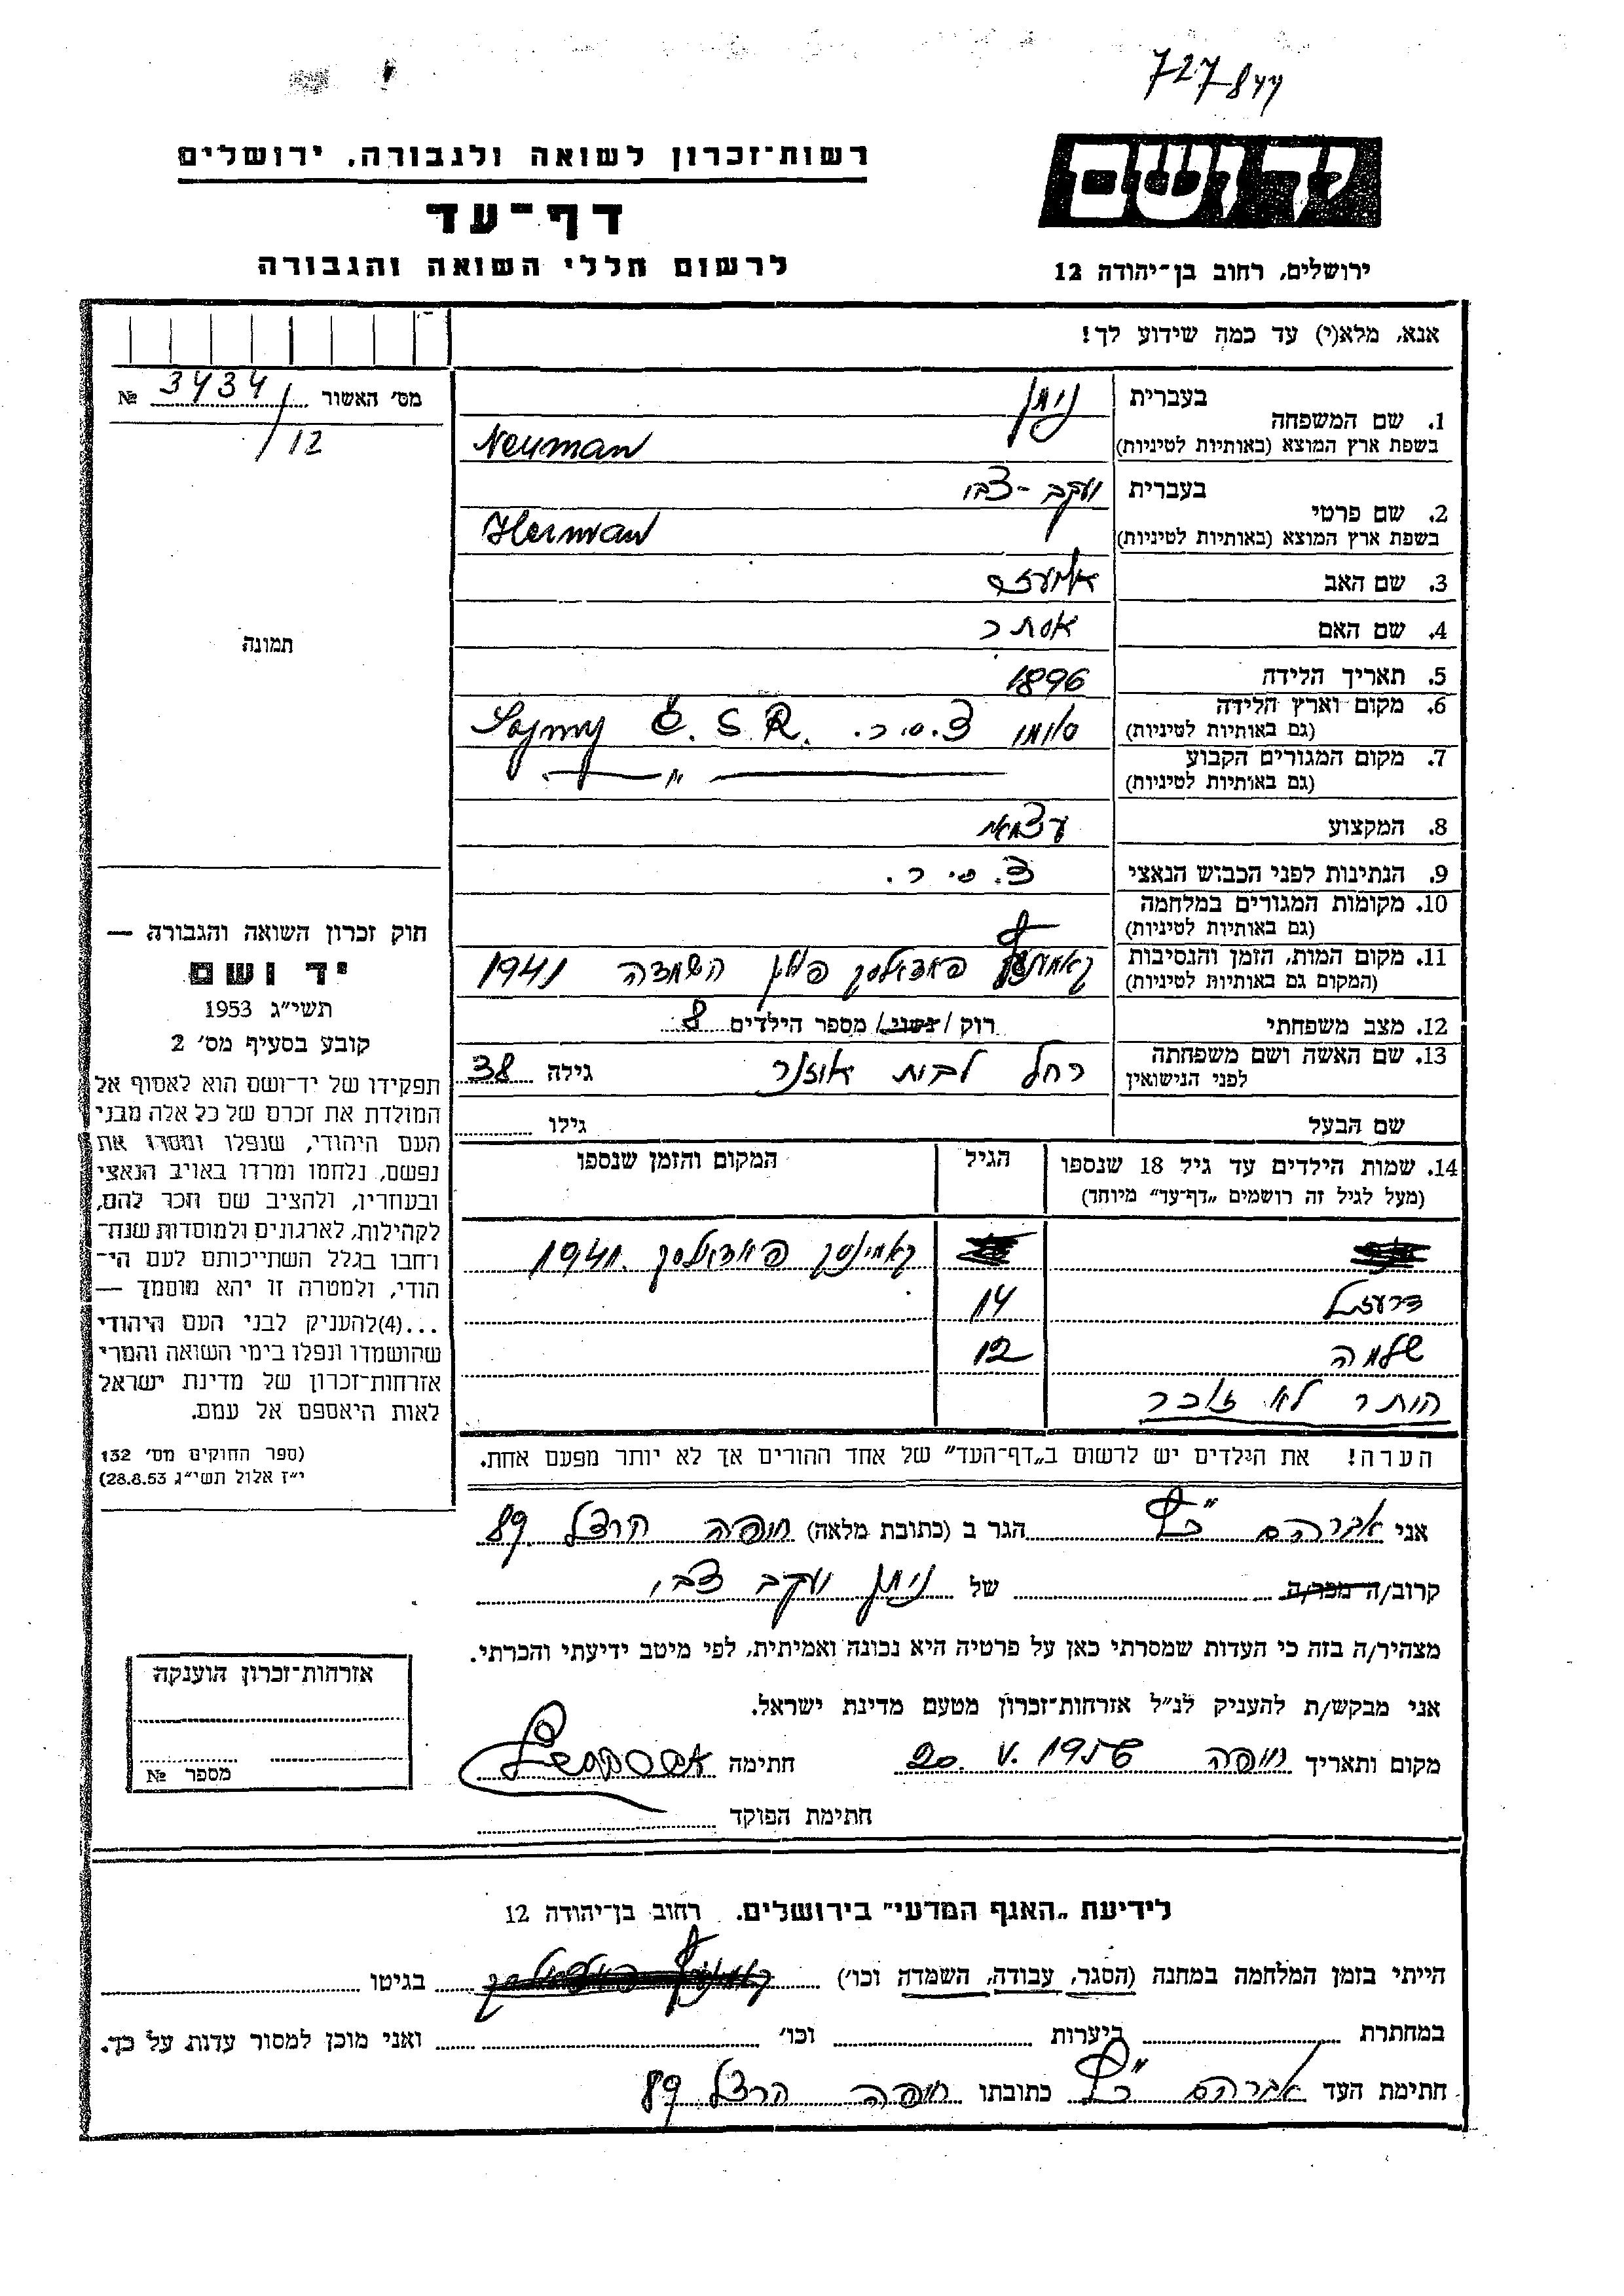 727844
ידושם
רשות־זכרון לשואה ולגבורה, ירושלים
דף־עד
לרשום חללי השואה והגבורה
ירושלים, רחוב בן־יהודה 12
אנא, מלא(י) עד כמה שידוע לך!
מס׳ האשור 3434 №
/12
תמונה
1. שם המשפחה
בעברית נימן
בשפת ארץ המוצא (באותיות לטיניות) Neuman
2. שם פרטי
בעברית יעקב-צבי
בשפת ארץ המוצא (באותיות לטיניות) Herman
3. שם האב אליעזר
4. שם האם אסתר
5. תאריך הלידה 1896
6. מקום וארץ הלידה
(גם באותיות לטיניות) צ.ס.ר. Č.S.R.
7. מקום המגורים הקבוע
(גם באותיות לטיניות) —〃—
8. המקצוע עצמאי
9. הנתינות לפני הכבוש הנאצי צ.ס.ר.
10. מקומות המגורים במלחמה
(גם באותיות לטיניות)
11. מקום המות, הזמן והנסיבות
(המקום גם באותיות לטיניות) פודולסק פולין השמדה 1941
12. מצב משפחתי רוק / נשוי / מספר הילדים 8
13. שם האשה ושם משפחתה
לפני הנישואין רחל לבית גילה 38
שם הבעל גילו
14. שמות הילדים עד גיל 18 שנספו הגיל המקום והזמן שנספו
(מעל לגיל זה רושמים „דף־עד״ מיוחד)
קאמינסק פודולסק 1941
14
שלמה 12
היתר לא זוכר
הערה! את הילדים יש לרשום ב„דף־העד״ של אחד ההורים אך לא יותר מפעם אחת.
חוק זכרון השואה והגבורה —
יד ושם
תשי״ג 1953
קובע בסעיף מס׳ 2
תפקידו של יד־ושם הוא לאסוף אל
המולדת את זכרם של כל אלה מבני
העם היהודי, שנפלו ומסרו את
נפשם, נלחמו ומרדו באויב הנאצי
ובעוזריו, ולהציב שם וזכר להם,
לקהילות, לארגונים ולמוסדות שנח־
רחבו בגלל השתייכותם לעם הי־
הודי, ולמטרה זו יהא מוסמך —
...(4)להעניק לבני העם היהודי
שהושמדו ונפלו בימי השואה והמרי
אזרחות־זכרון של מדינת ישראל
לאות היאספם אל עמם.
(ספר החוקים מס׳ 132
י״ז אלול תשי״ג 28.8.53)
אני אברהם כ״ץ הגר ב (כתובת מלאה) חיפה הרצל 89
קרוב/ה מכר/ה של נימן יעקב צבי
מצהיר/ה בזה כי העדות שמסרתי כאן על פרטיה היא נכונה ואמיתית, לפי מיטב ידיעתי והכרתי.
אני מבקש/ת להעניק לנ״ל אזרחות־זכרון מטעם מדינת ישראל.
מקום ותאריך חיפה 20. V. 1956 חתימה
חתימת הפוקד
אזרחות־זכרון הוענקה
מספר №
לידיעת „האגף המדעי״ בירושלים. רחוב בן־יהודה 12
הייתי בזמן המלחמה במחנה (הסגר, עבודה, השמדה וכו׳) בגיטו
במחתרת ביערות וכו׳ ואני מוכן למסור עדות על כך.
חתימת העד אברהם כ״ץ כתובתו חיפה הרצל 89